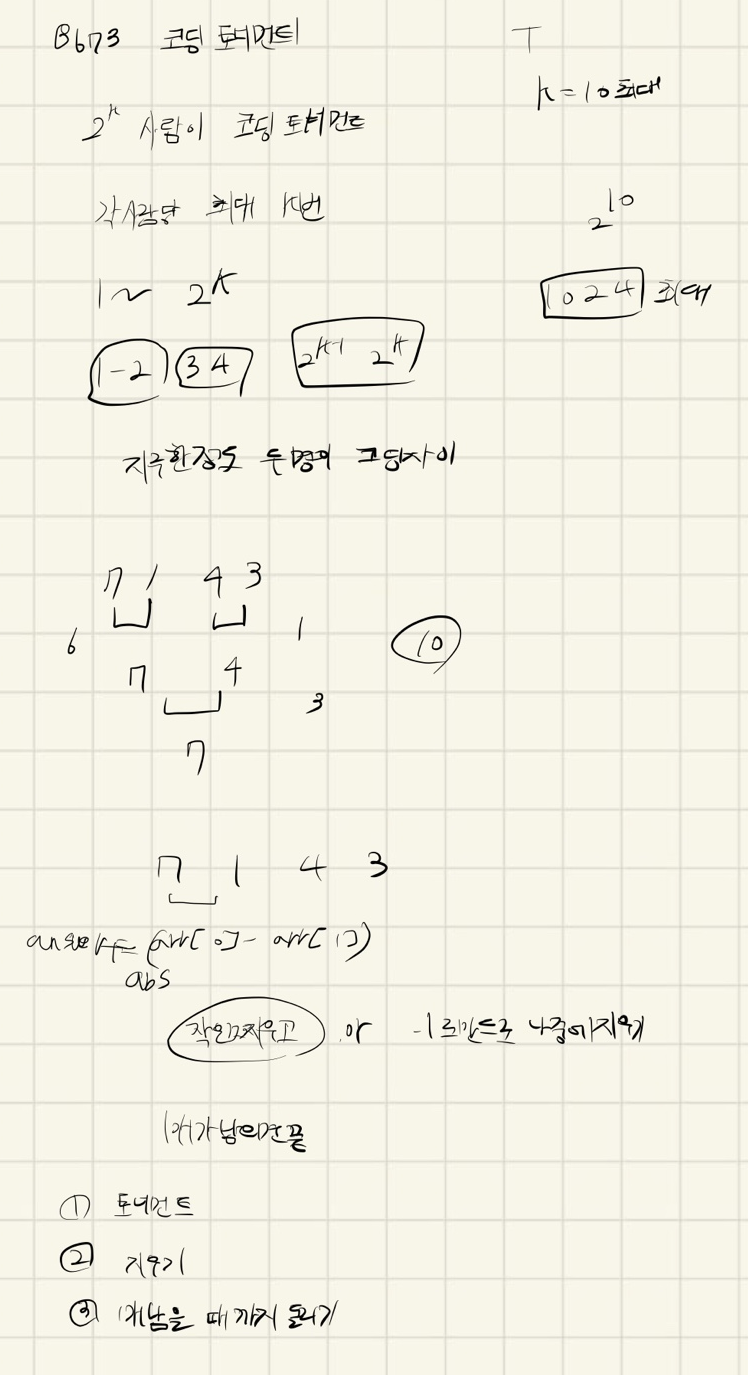 8673 코딩 토너먼트1
T
K=10 최대
2^K 사람이 코딩 토너먼트
각사람당 최대 K번
2^10
1~ 2^K
1024 최대
1-2 3 4 2^K-1 2^K
지루한정도 두명의 코딩차이
7 1 4 3
6 1 10
7 4
3
7
7 1 4 3
answer += (arr[0]- arr[1])
abs
작은거지우고 or -1로만드로 나중에지우기
1개가남으면 끝
① 토너먼트
② 지우기
③ 1개남을 때 까지 돌리기